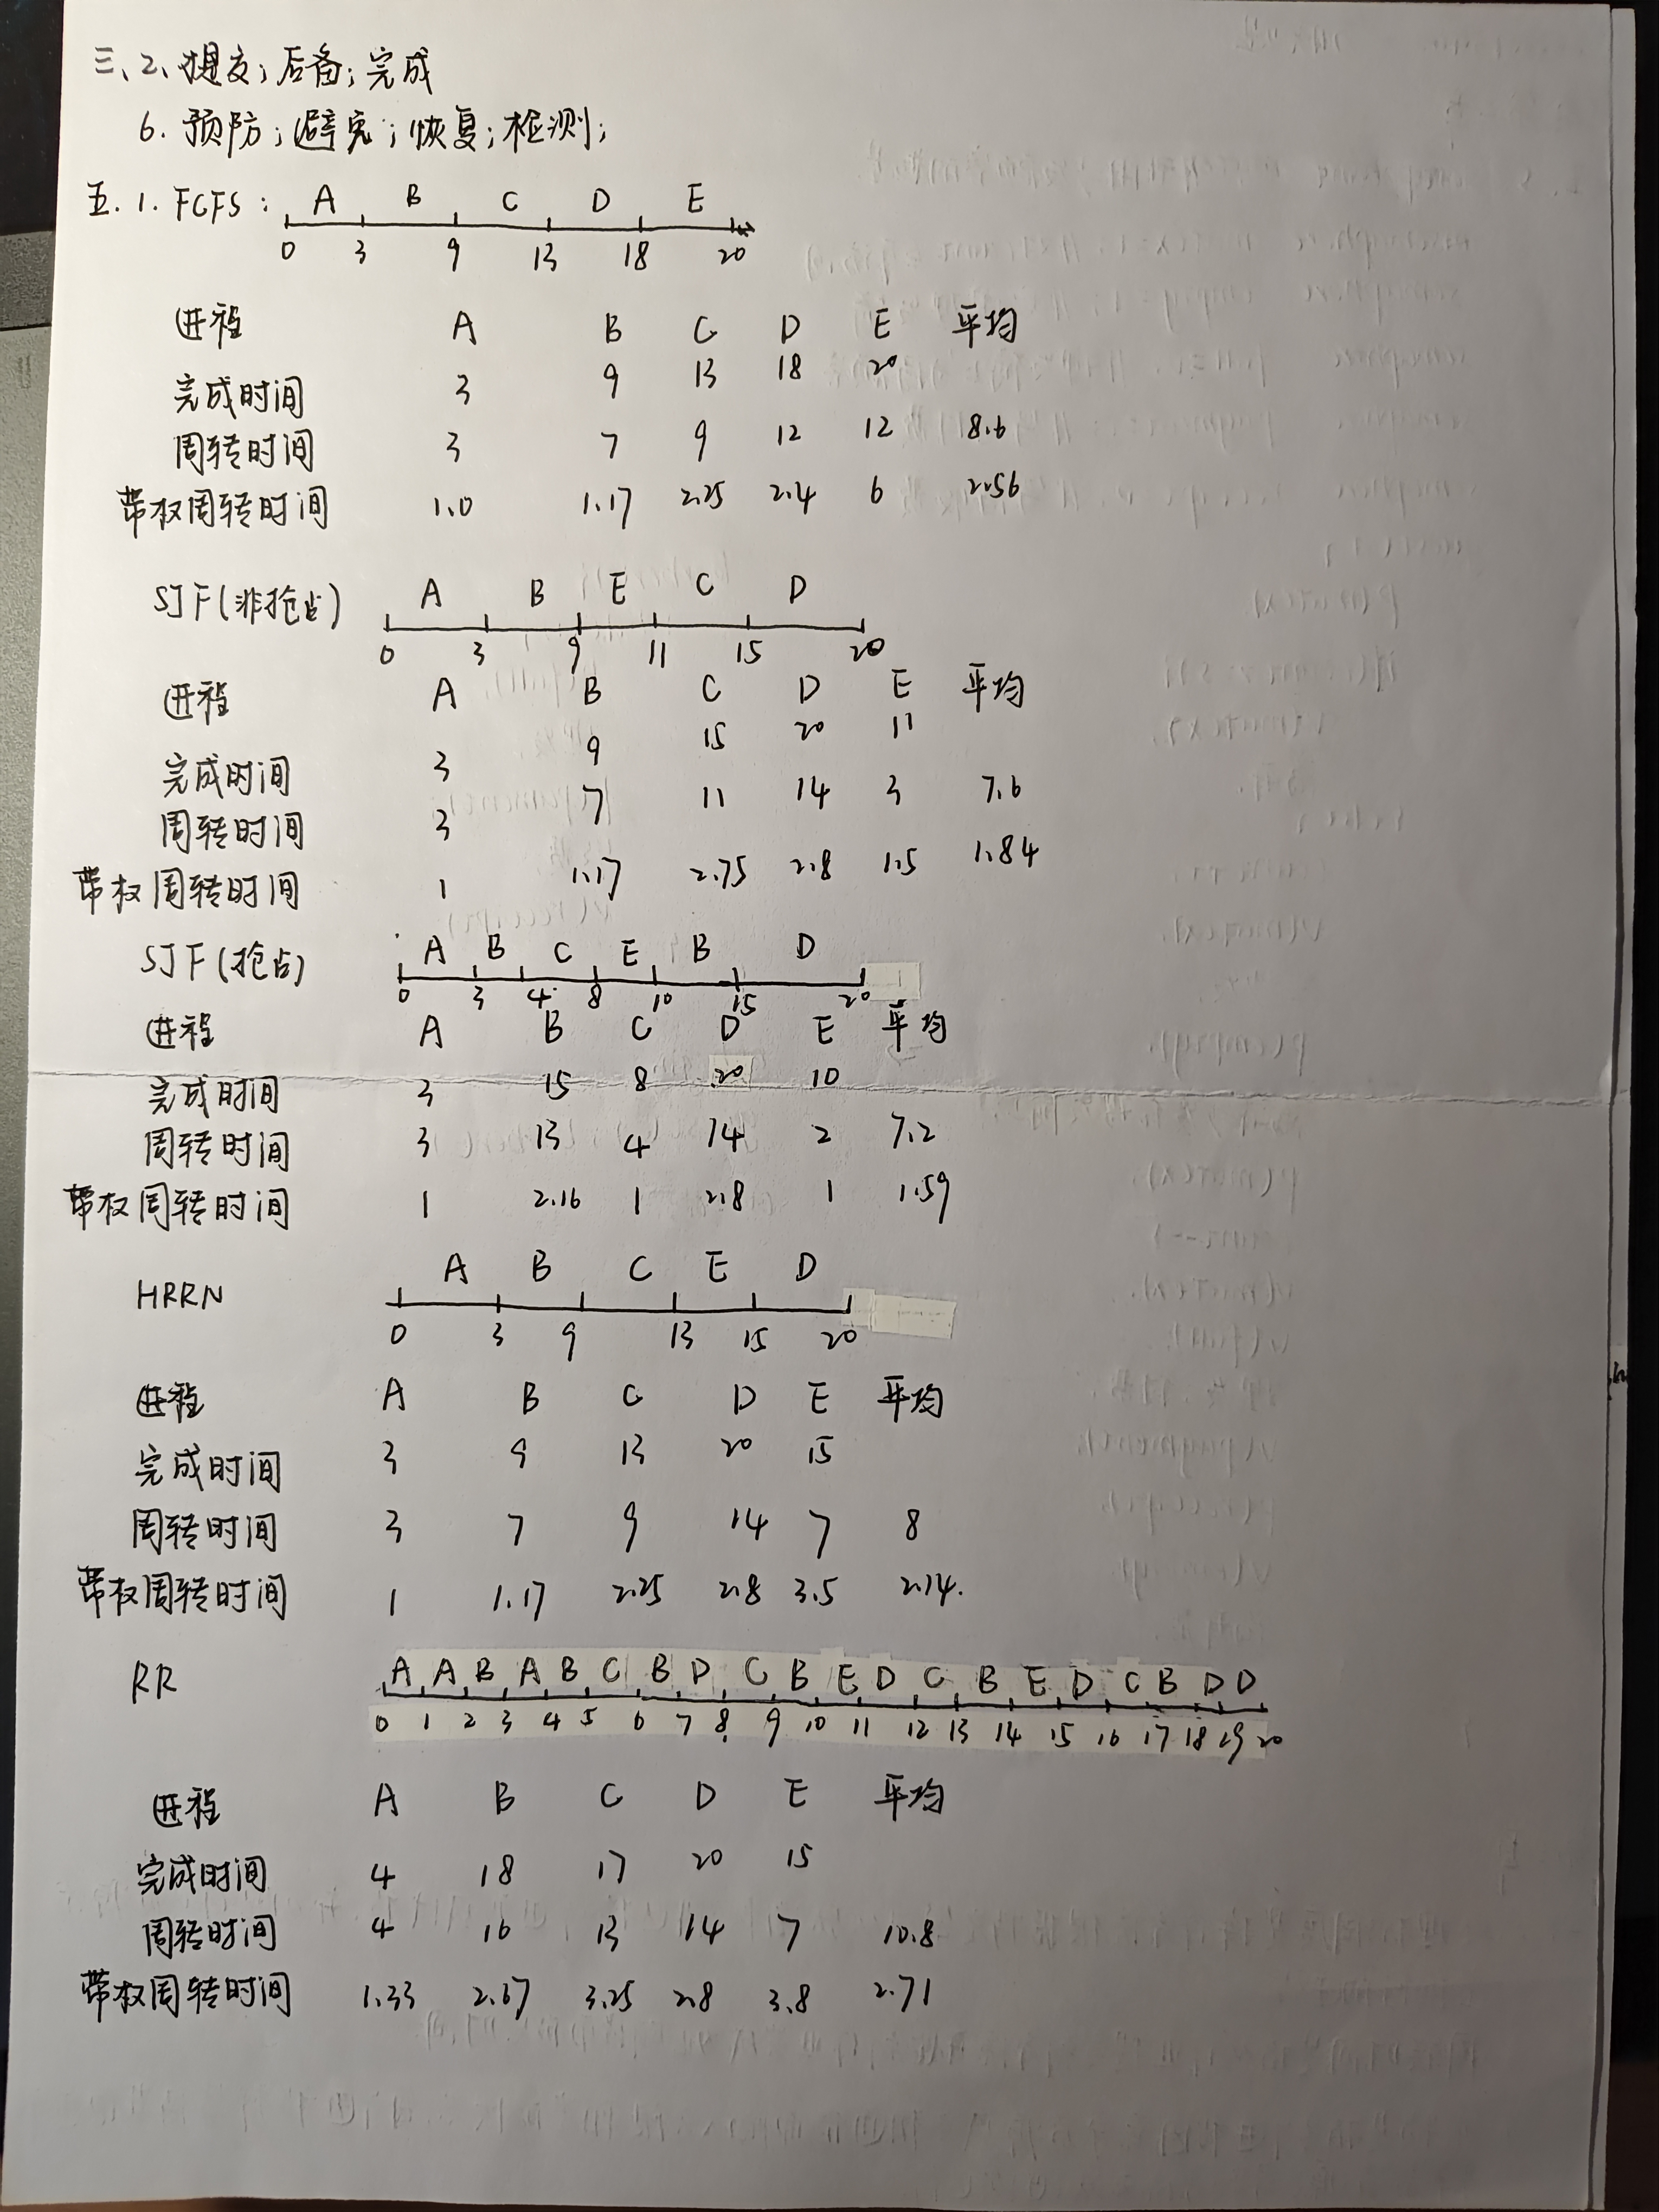 三、2、提交；后备；完成
6. 预防；避免；恢复；检测；
五. 1. FCFS：
A B C D E
0 3 9 13 18 20
进程 A B C D E 平均
完成时间 3 9 13 18 20
周转时间 3 7 9 12 12 8.6
带权周转时间 1.0 1.17 2.25 2.4 6 2.56
SJF(非抢占)
A B E C D
0 3 9 11 15 20
进程 A B C D E 平均
完成时间 3 9 15 20 11
周转时间 3 7 11 14 3 7.6
带权周转时间 1 1.17 2.75 2.8 1.5 1.84
SJF(抢占)
A B C E B D
0 3 4 8 10 15 20
进程 A B C D E 平均
完成时间 3 15 8 20 10
周转时间 3 13 4 14 2 7.2
带权周转时间 1 2.16 1 2.8 1 1.59
HRRN
A B C E D
0 3 9 13 15 20
进程 A B C D E 平均
完成时间 3 9 13 20 15
周转时间 3 7 9 14 7 8
带权周转时间 1 1.17 2.25 2.8 3.5 2.14.
RR
A A B A B C B D C B E D C B E D C B D D
0 1 2 3 4 5 6 7 8 9 10 11 12 13 14 15 16 17 18 19 20
进程 A B C D E 平均
完成时间 4 18 17 20 15
周转时间 4 16 13 14 7 10.8
带权周转时间 1.33 2.67 3.25 2.8 3.8 2.71